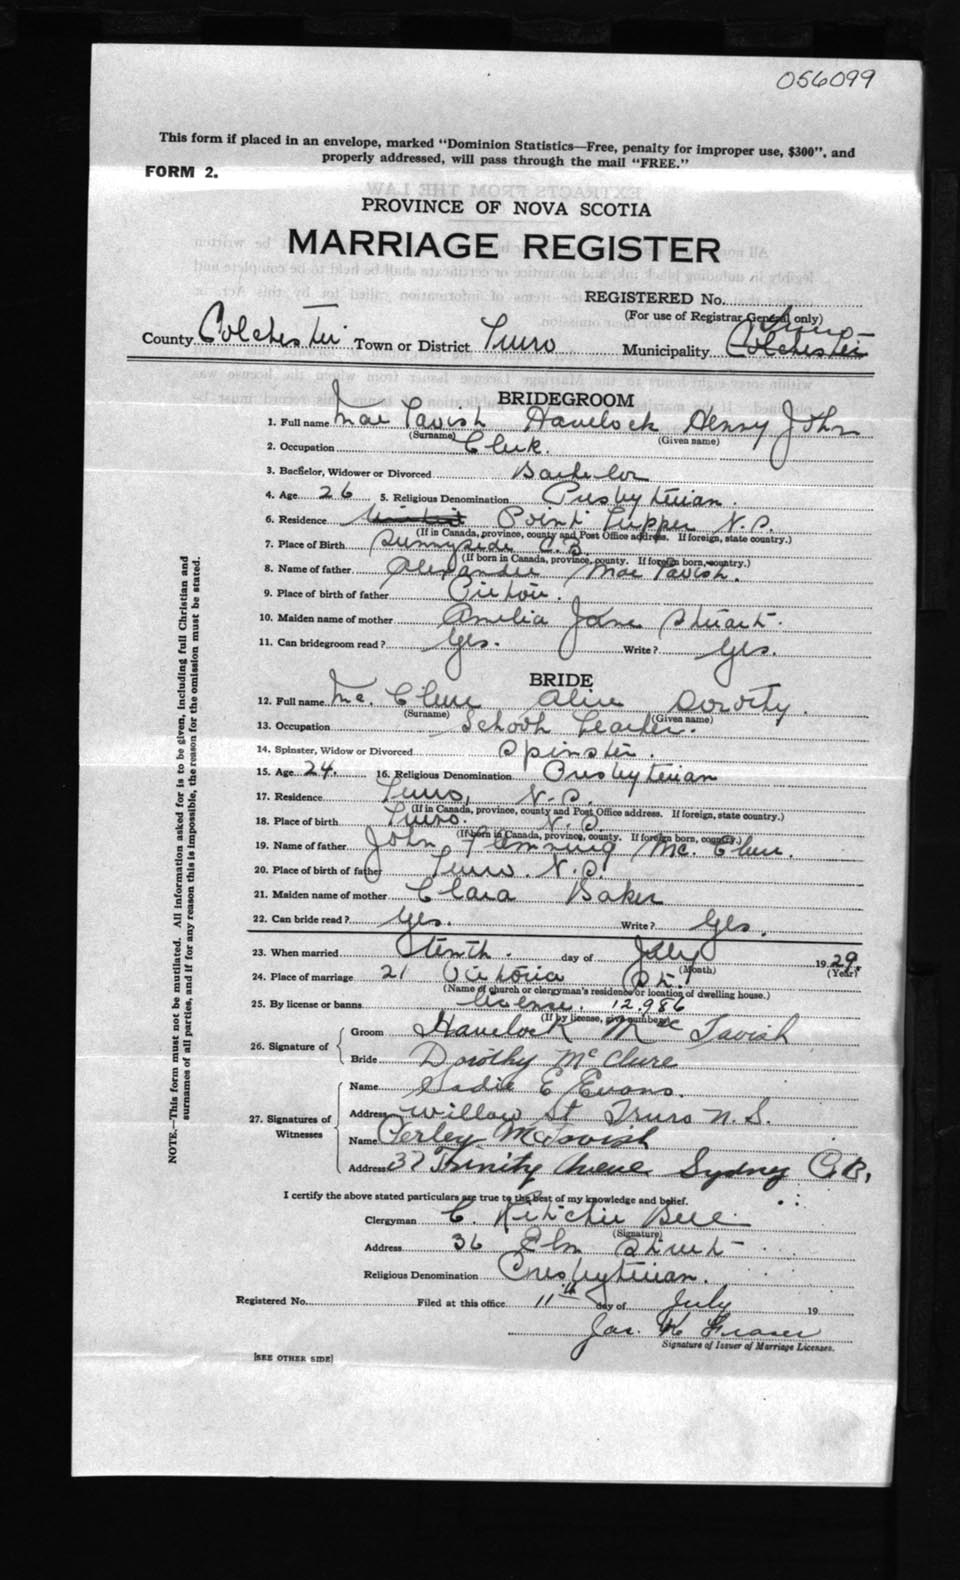 056099
This form if placed in an envelope, marked "Dominion Statistics—Free, penalty for improper use, $300", and
properly addressed, will pass through the mail "FREE."
FORM 2.
PROVINCE OF NOVA SCOTIA
MARRIAGE REGISTER
REGISTERED No.
(For use of Registrar General only)
Truro
County Colchester Town or District Truro Municipality Colchester
BRIDEGROOM
1. Full name Mac Tavish Havelock Henry John
(Surname) (Given name)
2. Occupation Clerk.
3. Bachelor, Widower or Divorced Bachelor
4. Age 26 5. Religious Denomination Presbyterian.
6. Residence Point Tupper N.S.
(If in Canada, province, county and Post Office address. If foreign, state country.)
7. Place of Birth Sunnyside C.B.
(If born in Canada, province, county. If foreign born, country.)
8. Name of father Alexander Mac Tavish.
9. Place of birth of father Pictou.
10. Maiden name of mother Amelia Jane Stuart.
11. Can bridegroom read? Yes. Write? Yes.
BRIDE
12. Full name Mc. Clure Alice Dorothy.
(Surname) (Given name)
13. Occupation School Teacher.
14. Spinster, Widow or Divorced Spinster.
15. Age 24. 16. Religious Denomination Presbyterian
17. Residence Truro, N.S.
(If in Canada, province, county and Post Office address. If foreign, state country.)
18. Place of birth Truro. N.S.
(If born in Canada, province, county. If foreign born, country.)
19. Name of father John Flemming Mc. Clure.
20. Place of birth of father Truro. N.S.
21. Maiden name of mother Clara Baker
22. Can bride read? Yes. Write? Yes.
23. When married tenth. day of July 1929.
(Month) (Year)
24. Place of marriage 21 Victoria St.
(Name of church or clergyman's residence or location of dwelling house.)
25. By license or banns license. 12,986
(If by license, give number)
26. Signature of Groom Havelock McTavish
Bride Dorothy McClure
27. Signatures of Witnesses Name Sadie E Evans.
Address Willow St Truro N.S.
Name Perley McTavish
Address 37 Trinity Avenue Sydney C.B.,
I certify the above stated particulars are true to the best of my knowledge and belief.
Clergyman C. Ritchie Bell
(Signature)
Address 36 Elm Street
Religious Denomination Presbyterian.
Registered No. Filed at this office 11th day of July 19
Jas. K Fraser
Signature of Issuer of Marriage Licenses.
[SEE OTHER SIDE]
NOTE.—This form must not be mutilated. All information asked for is to be given, including full Christian and
surnames of all parties, and if for any reason this is impossible, the reason for the omission must be stated.